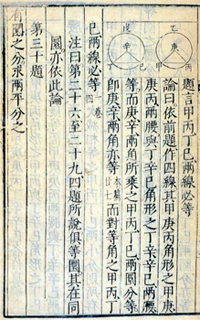 題言甲丙丁巳兩線必等
論曰依前題作四線其甲庚丙角形之甲庚
庚丙兩腰與丁辛巳角形之丁辛辛巳兩腰
等而庚辛兩角所乘之甲丙丁巳兩圜分等
即庚辛兩角亦等本篇廿七而對等角之甲丙丁
巳兩線必等一卷四
注曰第二十六至二十九四題所說俱等圜其在同
圜亦依此論
第三十題
有圜之分求兩平分之